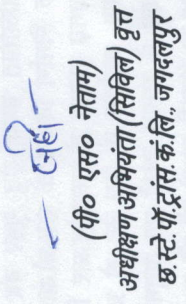 (पी० एस० नेताम)
अधीक्षण अभियंता (सिविल) वृत्त
छ.स्टे.पॉ.ट्रांस.कं.लि., जगदलपुर